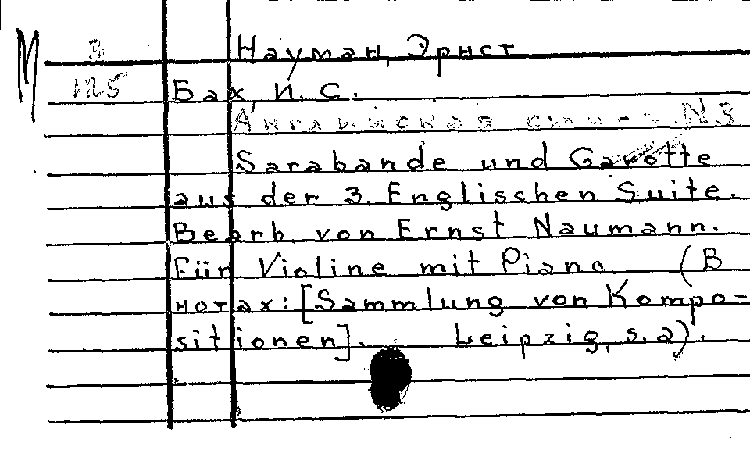 М
З Науман, Эрнст
М5 Бах, И. С.
Английская сюита N3
Sarabande und Gavotte
aus der 3. Englischen Suite.
Bearb. von Ernst Naumann.
Für Violine mit Piano (В
нотах: [Sammlung von Kompo-
sitionen]. Leipzig, s. a).